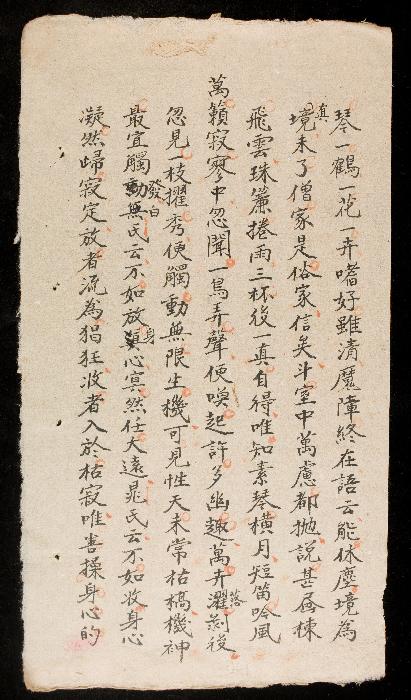 琴一鶴一花一卉嗜好雖清魔障終在語云能休塵境為
真境未了僧家是俗家信矣斗室中萬慮都拋說甚棟
飛雲珠簾捲雨三杯後一真自得唯知素琴橫月短笛吟風
萬籟寂寥中忽聞一鳥弄聲便喚起許多幽趣萬卉濯落剝後
忽見一枝擢秀便觸動無限生機可見性天未常枯槁機神
最宜觸動發白無氏云不如放身心冥然任大遠晁氏云不如收身心
凝然歸寂定放者流為猖狂收者入於枯寂唯善操身心的